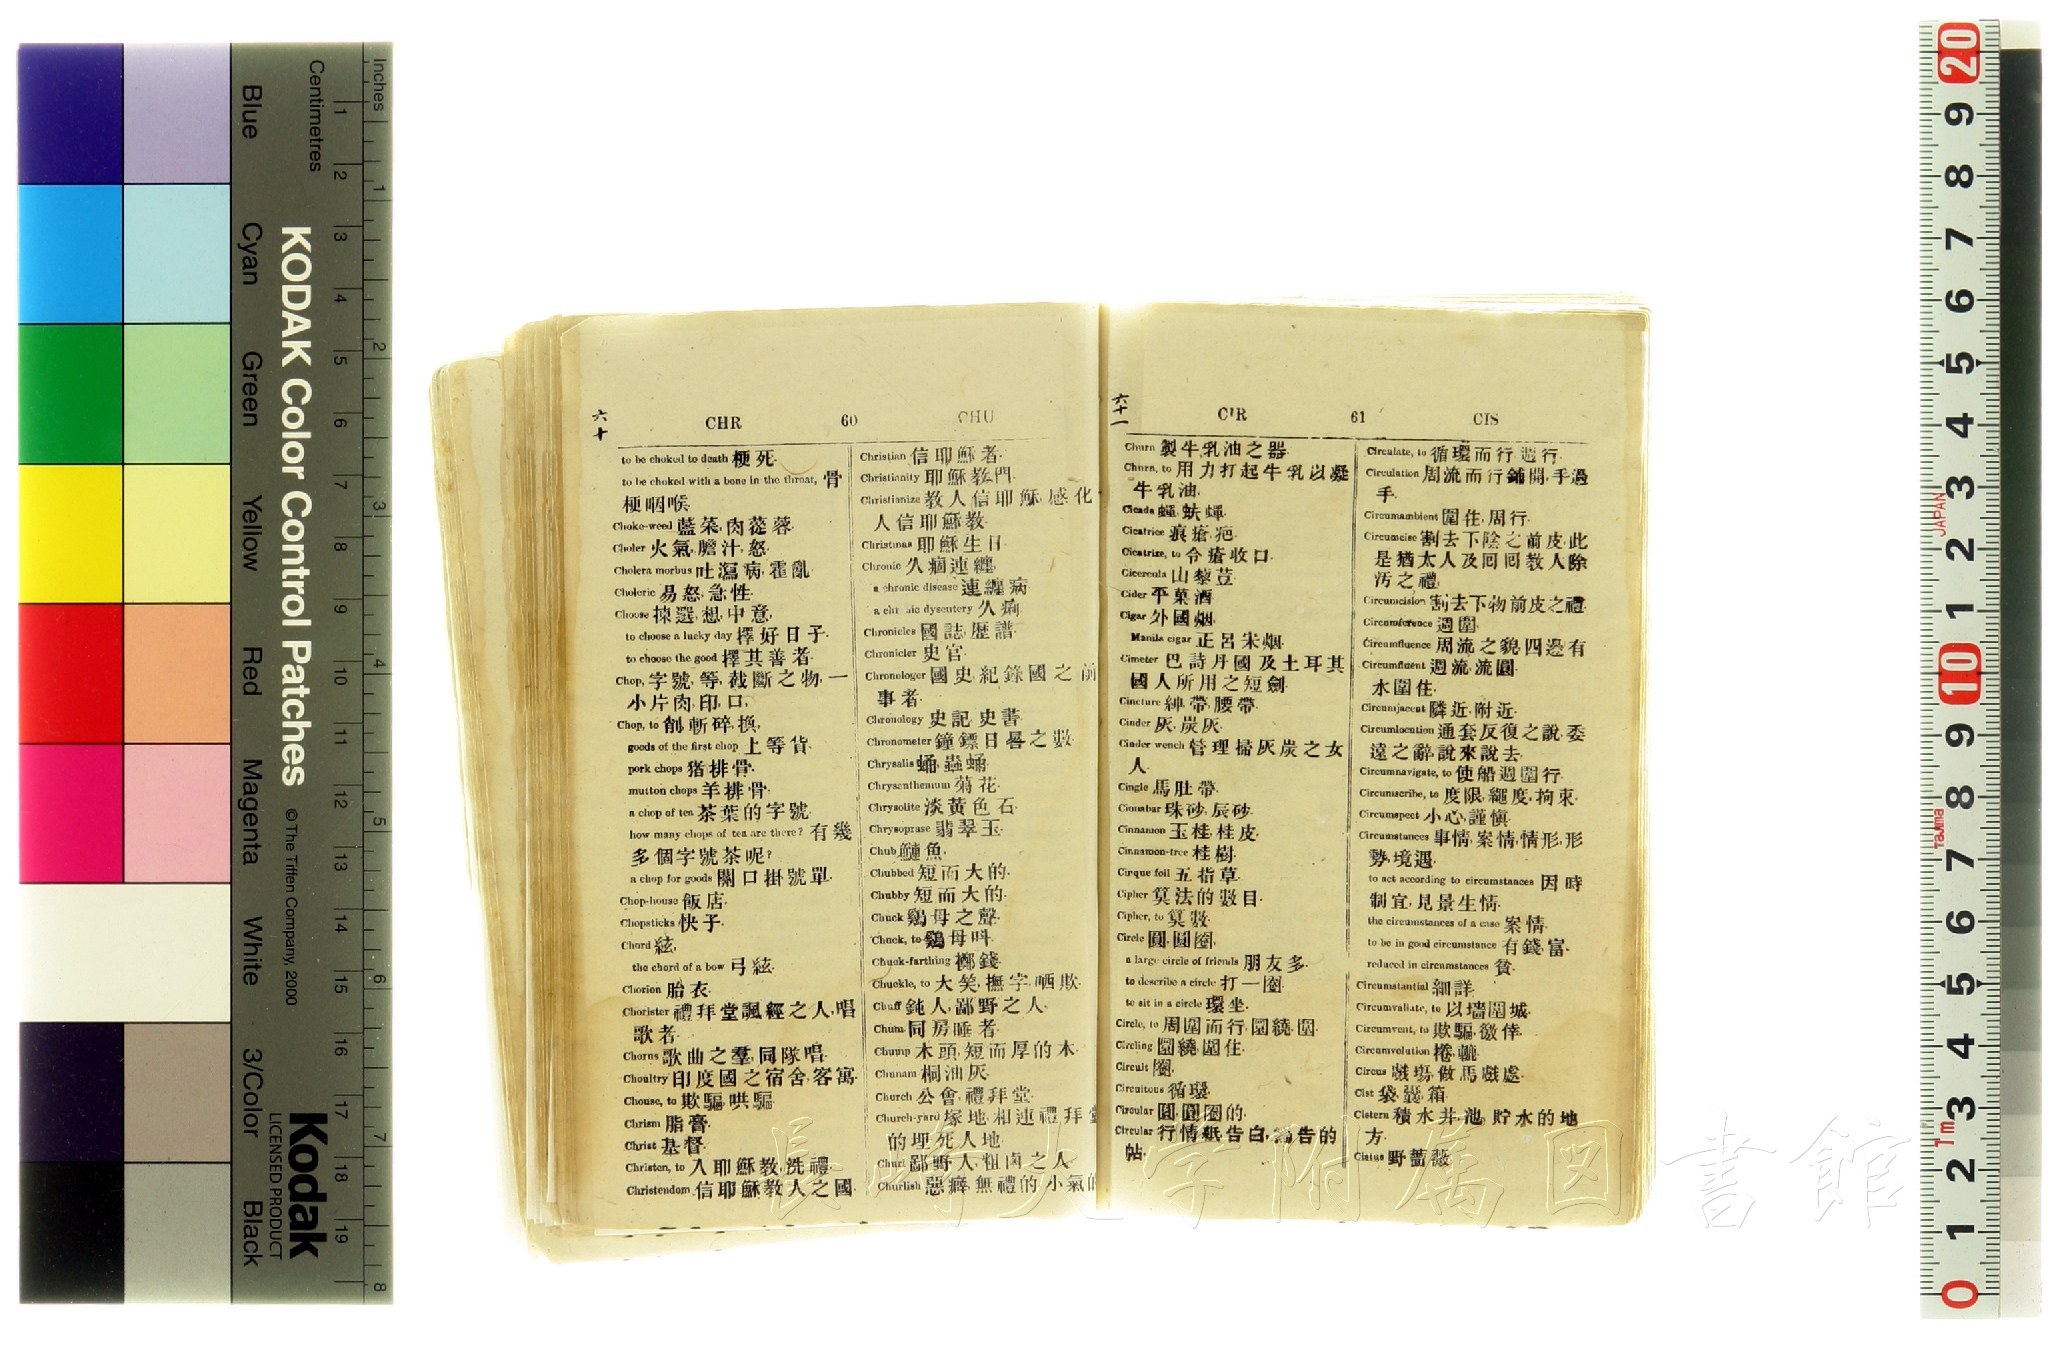 Inches
Centimetres
1 2 3 4 5 6 7 8
1 2 3 4 5 6 7 8 9 10 11 12 13 14 15 16 17 18 19
KODAK Color Control Patches
© The Tiffen Company, 2000
Kodak
LICENSED PRODUCT
Blue
Cyan
Green
Yellow
Red
Magenta
White
3/Color
Black
六十
CHR 60 CHU
to be choked to death 梗死.
to be choked with a bone in the throat, 骨
梗咽喉.
Choke-weed 藍菜, 肉蓯蓉.
Choler 火氣, 膽汁, 怒.
Cholera morbus 吐瀉病, 霍亂.
Choleric 易怒, 急性.
Choose 揀選, 想, 中意,
to choose a lucky day 擇好日子.
to choose the good 擇其善者.
Chop, 字號, 等, 截斷之物, 一
小片肉, 印, 口,
Chop, to 削, 斬碎, 換,
goods of the first chop 上等貨.
pork chops 猪排骨.
mutton chops 羊排骨.
a chop of tea 茶葉的字號.
how many chops of tea are there? 有幾
多個字號茶呢?
a chop for goods 關口掛號單.
Chop-house 飯店.
Chopsticks 快子.
Chord 絃,
the chord of a bow 弓絃.
Chorion 胎衣.
Chorister 禮拜堂諷經之人, 唱
歌者.
Chorus 歌曲之羣, 同隊唱.
Choultry 印度國之宿舍, 客寓.
Chouse, to 欺騙, 哄騙
Chrism 脂膏.
Christ 基督.
Christen, to 入耶穌教, 洗禮.
Christendom 信耶穌教人之國.
Christian 信耶穌者.
Christianity 耶穌教門.
Christianize 教人信耶穌, 感化
人信耶穌教.
Christmas 耶穌生日.
Chronic 久痼, 連纏,
a chronic disease 連纏病.
a chronic dysentery 久痢.
Chronicles 國誌, 歷譜.
Chronicler 史官.
Chronologer 國史, 紀錄國之前
事者.
Chronology 史記, 史書.
Chronometer 鐘鏢, 日晷之數.
Chrysalis 蛹, 蟲蛹.
Chrysanthemum 菊花.
Chrysolite 淡黃色石.
Chrysoprase 翡翠玉.
Chub 鰱魚.
Chubbed 短而大的.
Chubby 短而大的.
Chuck 鷄母之聲.
Chuck, to 鷄母呌.
Chuck-farthing 擲錢.
Chuckle, to 大笑, 撫字, 哂欺.
Chuff 鈍人, 鄙野之人.
Chum 同房睡者.
Chump 木頭, 短而厚的木.
Chunam 桐油灰.
Church 公會, 禮拜堂.
Church-yard 塚地, 相連禮拜堂
的埋死人地.
Churl 鄙野人, 粗鹵之人.
Churlish 惡癖, 無禮的, 小氣的
六十一
CIR 61 CIS
Churn 製牛乳油之器.
Churn, to 用力打起牛乳以凝
牛乳油.
Cicada 蠅, 蚨蟬.
Cicatrice 痕, 瘡疤.
Cicatrize, to 令瘡收口.
Cicercula 山藜荳.
Cider 平菓酒.
Cigar 外國烟,
Manila cigar 正呂宋烟.
Cimeter 巴詩丹國及土耳其
國人所用之短劍.
Cincture 紳帶, 腰帶.
Cinder 灰, 炭灰.
Cinder wench 管理掃灰炭之女
人.
Cingle 馬肚帶.
Cinnabar 珠砂, 辰砂.
Cinnamon 玉桂, 桂皮.
Cinnamon-tree 桂樹.
Cinque foil 五指草.
Cipher 算法的數目.
Cipher, to 算數.
Circle 圓, 圓圈,
a large circle of friends 朋友多.
to describe a circle 打一圈.
to sit in a circle 環坐.
Circle, to 周圍而行, 圍繞, 圍.
Circling 圍繞, 圍住.
Circuit 圈.
Circuitous 循環.
Circular 圓, 圓圈的.
Circular 行情紙, 告白, 編告的
帖.
Circulate, to 循環而行, 週行.
Circulation 周流而行, 鋪開, 手過
手.
Circumambient 圍住, 周行.
Circumcise 割去下陰之前皮, 此
是猶太人及囘囘教人除
汚之禮.
Circumcision 割去下物前皮之禮.
Circumference 週圍.
Circumfluence 周流之貌, 四邊有
水圍住.
Circumfluent 週流, 流圓.
Circumjacent 隣近, 附近.
Circumlocution 通套反復之說, 委
遠之辭, 說來說去.
Circumnavigate, to 使船週圍行.
Circumscribe, to 度限, 繩度, 拘束.
Circumspect 小心, 謹慎.
Circumstances 事情, 案情, 情形, 形
勢, 境遇.
to act according to circumstances 因時
制宜, 見景生情.
the circumstances of a case 案情.
to be in good circumstance 有錢, 富.
reduced in circumstances 貧.
Circumstantial 細詳.
Circumvallate, to 以墻圍城.
Circumvent, to 欺騙, 徼倖.
Circumvolution 捲, 轆.
Circus 戲塲, 做馬戲處.
Cist 袋, 囊, 箱.
Cistern 積水井, 池, 貯水的地
方.
Cistus 野薔薇.
長崎大学附属図書館
20 9 8 7 6 5 4 3 2 1 10 9 8 7 6 5 4 3 2 1 0
JAPAN
Tajima
1m